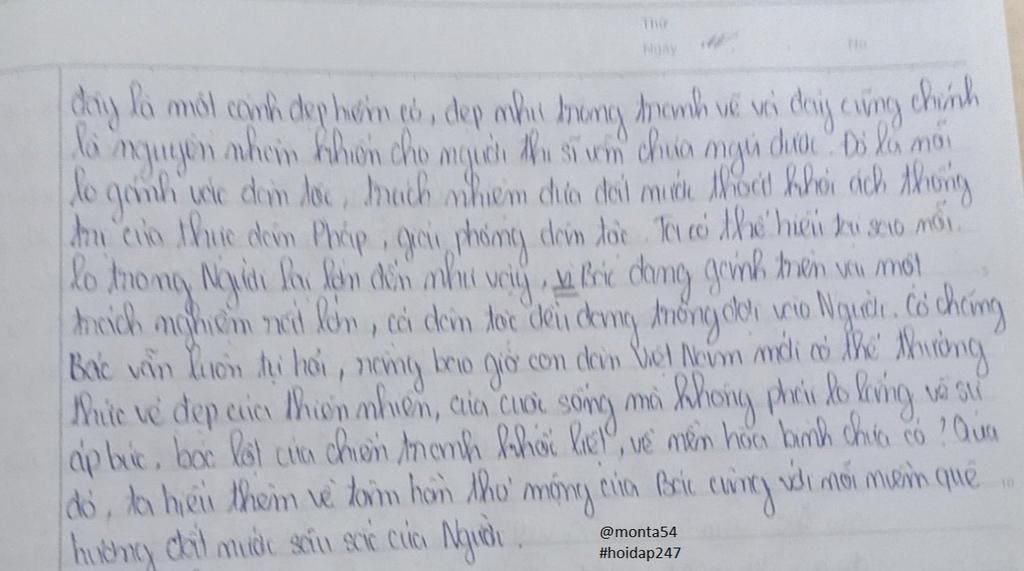 Thứ
Ngày No
đây là một cảnh đẹp hiếm có, đẹp như trong tranh vẽ và đây cũng chính
là nguyên nhân khiến cho người thi sĩ vẫn chưa ngủ được. Đó là mối
lo gánh vác dân tộc, trách nhiệm đưa đất nước thoát khỏi ách thống
trị của thực dân Pháp, giải phóng dân tộc. Ta có thể hiểu tại sao mối
lo trong Người lại lớn đến như vậy, vì Bác đang gánh trên vai một
trách nghiệm rất lớn, cả dân tộc đều đang trông đợi vào Người. Có chăng
Bác vẫn luôn tự hỏi, rằng bao giờ con dân Việt Nam mới có thể thưởng
thức vẻ đẹp của thiên nhiên, của cuộc sống mà không phải lo lắng về sự
áp bức, bóc lột của chiến tranh khốc liệt, về nền hòa bình chưa có? Qua
đó, ta hiểu thêm về tâm hồn thơ mộng của Bác cùng với nỗi niềm quê
hương đất nước sâu sắc của Người.
@monta54
#hoidap247